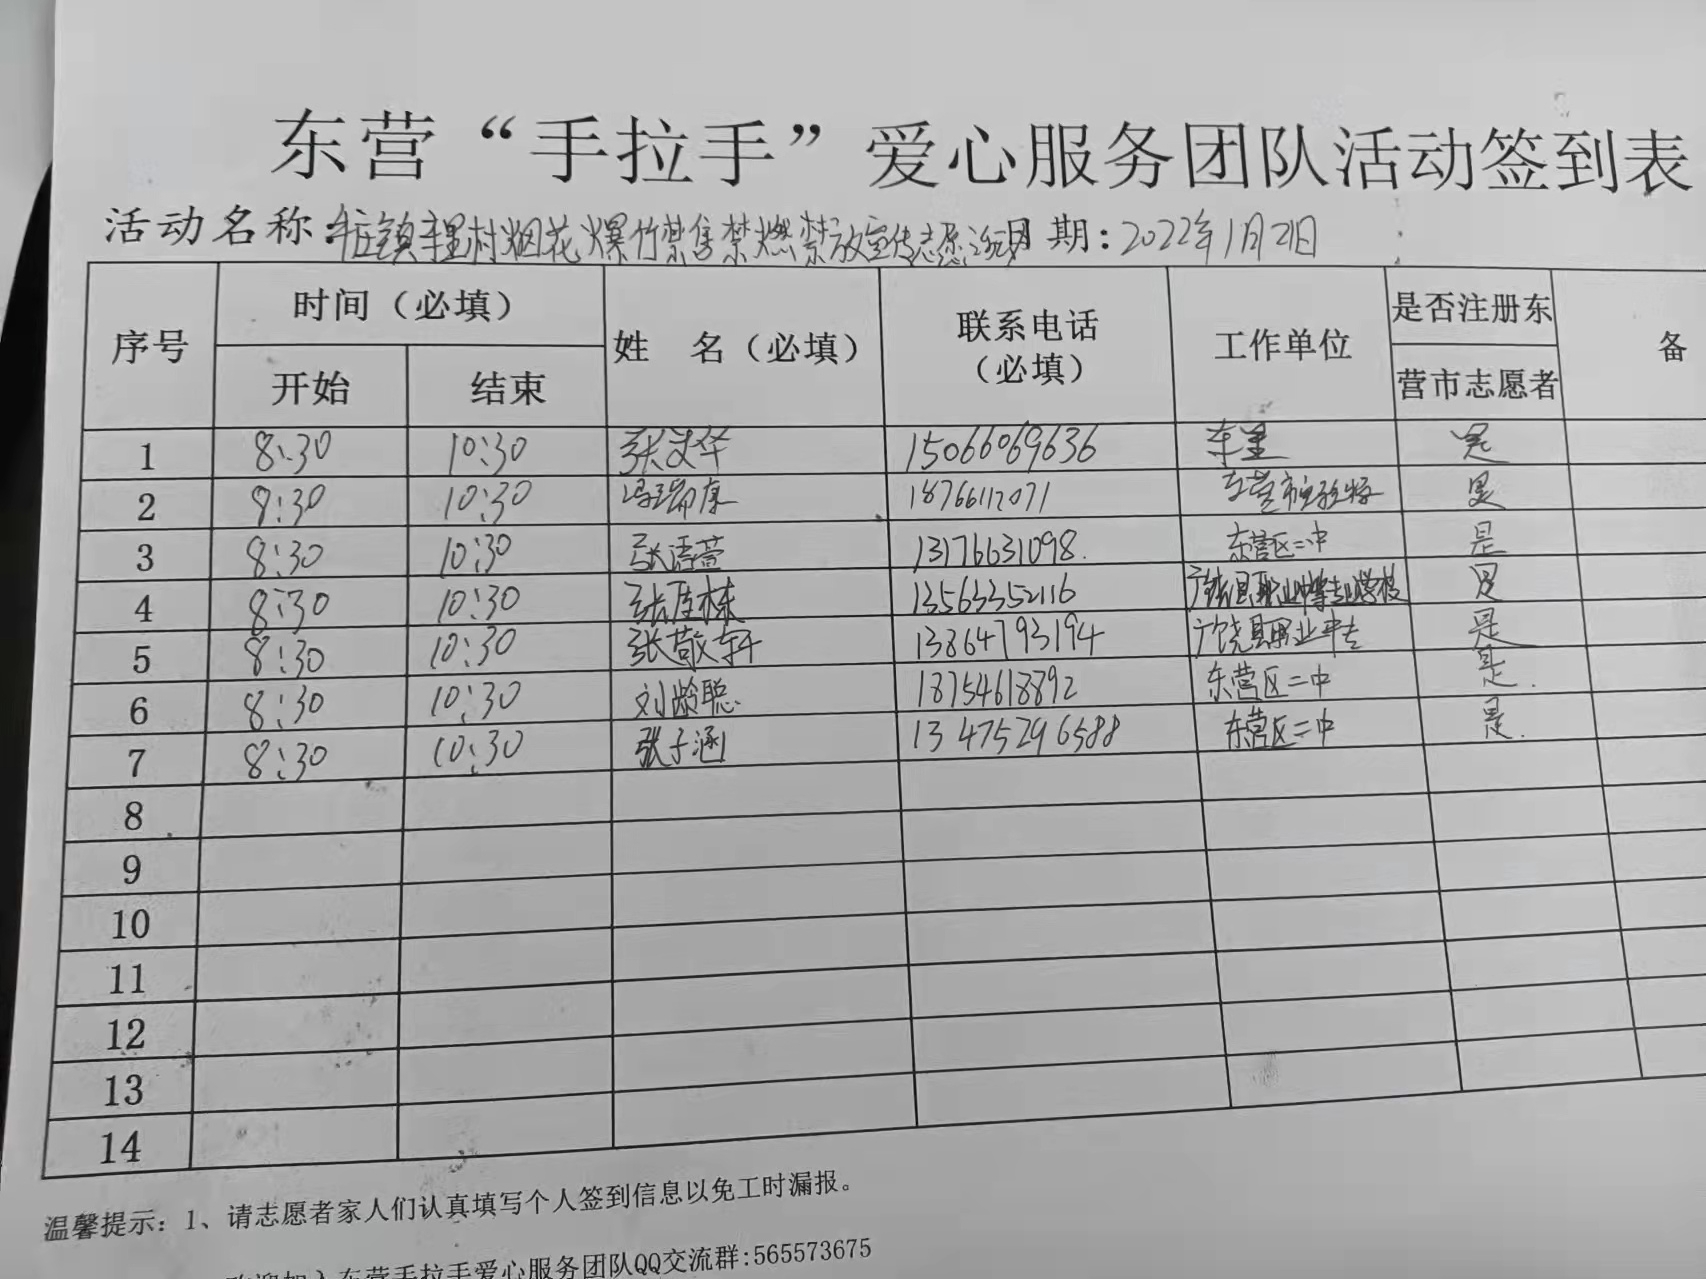 东营“手拉手”爱心服务团队活动签到表
活动名称:牛庄镇东里村烟花爆竹禁售禁燃禁放宣传志愿活动 日期:2022年1月21日
序号 时间（必填） 姓 名（必填） 联系电话（必填） 工作单位 是否注册东营市志愿者 备
开始 结束
1 8:30 10:30 张文华 15066069636 东里 是
2 8:30 10:30 冯瑞康 18766112071 东营市实验 是
3 8:30 10:30 张语萱 13176631098 东营区二中 是
4 8:30 10:30 张 栋 13563352116 广饶县职业中等专业学校 是
5 8:30 10:30 张敬轩 13864793194 广饶县职业中专 是
6 8:30 10:30 刘龄聪 18754618892 东营区二中 是.
7 8:30 10:30 张子涵 13475296588 东营区二中 是.
8
9
10
11
12
13
14
温馨提示:1、请志愿者家人们认真填写个人签到信息以免工时漏报。
欢迎加入东营手拉手爱心服务团队QQ交流群:565573675